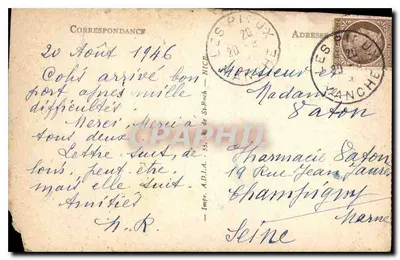 CORRESPONDANCE
20 Août 1946
Colis arrivé bon
port après mille
difficultés.
Merci Merci à
tous deux
Lettre suit, de
tous, peut être.
mais elle suit.
Amitiés
Impr. A.D.I.A. - 35, R. de St-Roch - NICE
ADRESSE
LES PIEUX
MANCHE
20
LES PIEUX
MANCHE
20
Monsieur et
Madame
Vaton
Pharmacie Vaton
19 Rue Jean Jaurès
Champigny
Marne
Seine
CPARAMA